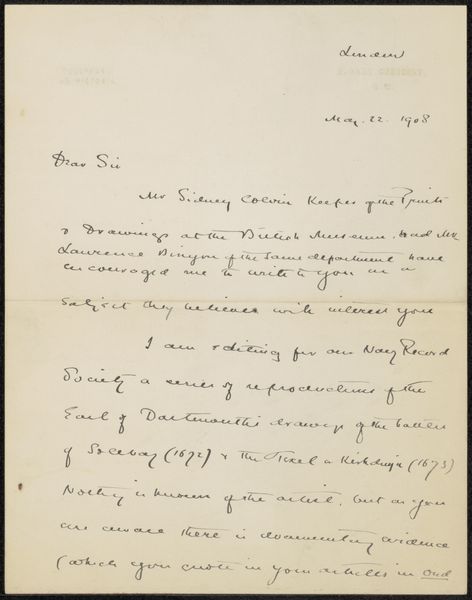 London
May. 22. 1908
Dear Sir
Mr Sidney Colvin Keeper of the Prints
& Drawings at the British Museum and Mr
Laurence Binyon of the same department have
encouraged me to write to you on a
subject they believe will interest you
I am editing for our Navy Record
Society a series of reproductions of the
Earl of Dartmouth's drawings of the battles
of Solebay (1672) & the Texel or Kirkduijn (1673)
Nothing is known of the artist, but as you
are aware there is documentary evidence
(which you quote in your articles in Oud